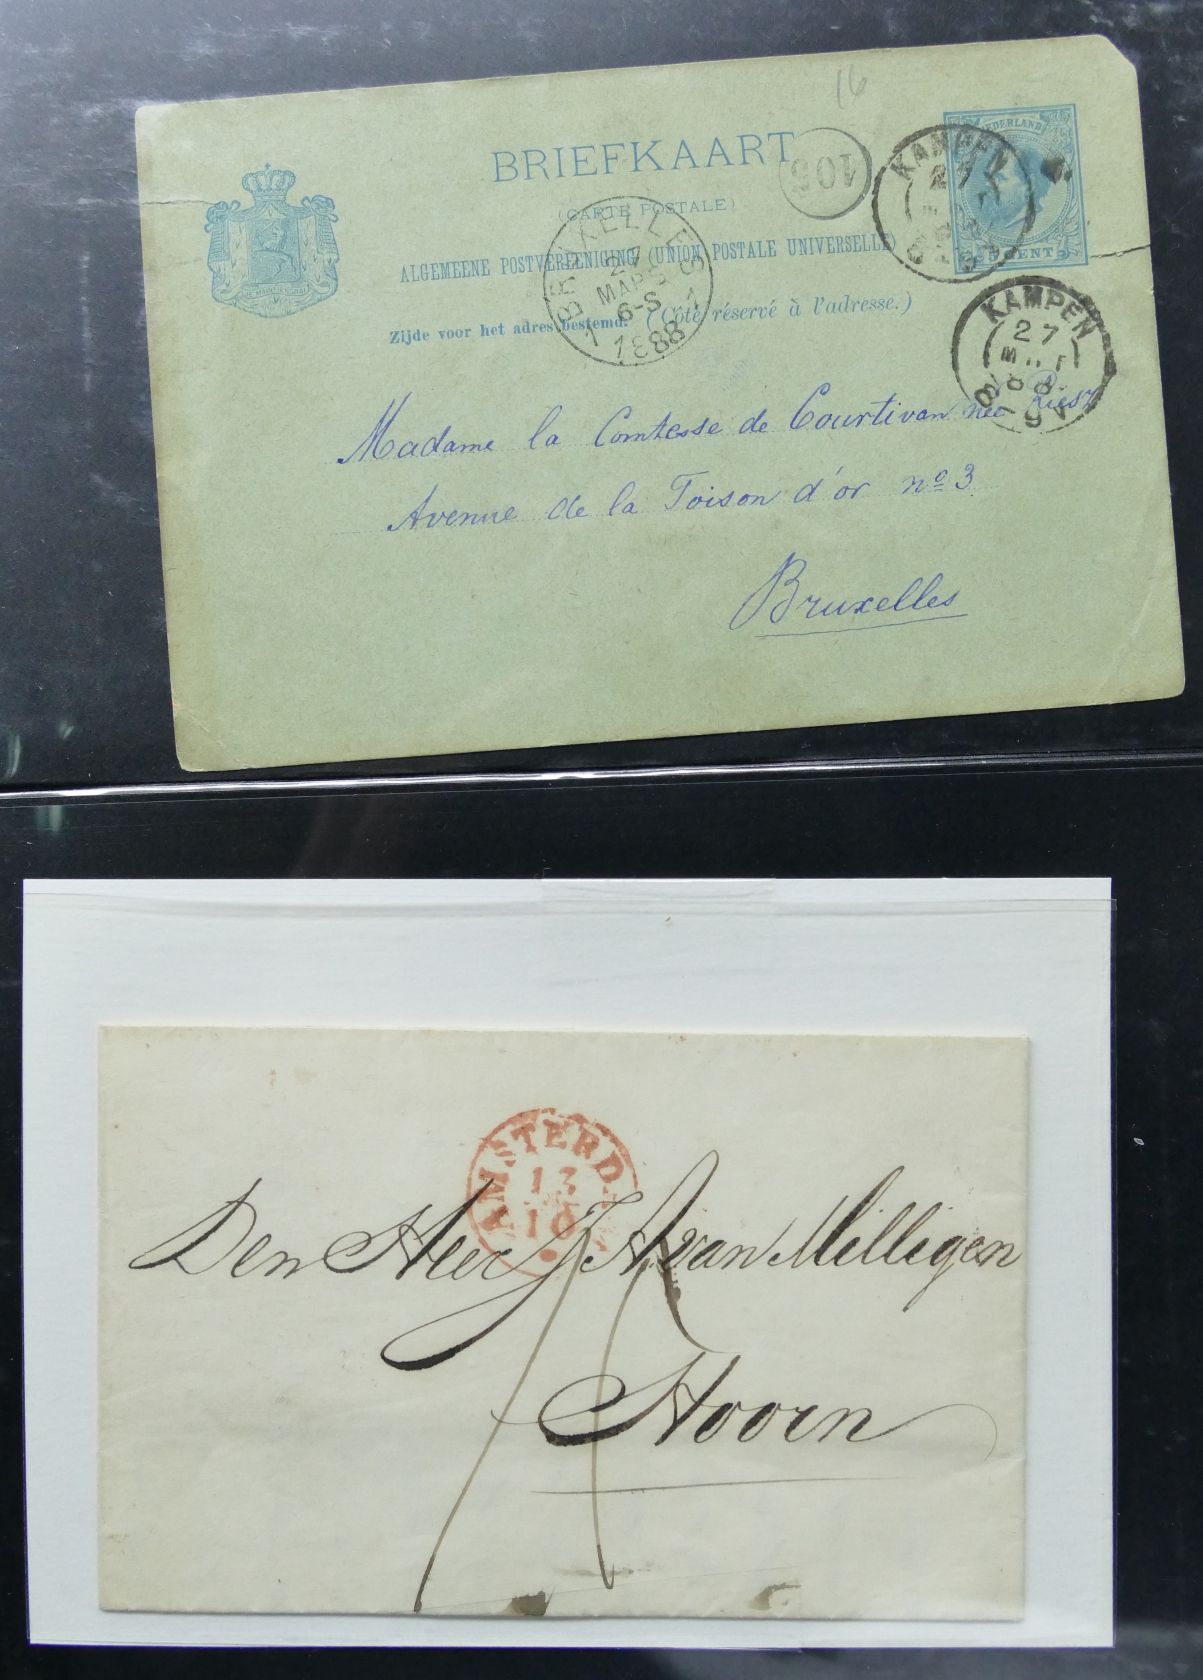 16
BRIEFKAART
(CARTE POSTALE)
ALGEMEENE POSTVEREENIGING (UNION POSTALE UNIVERSELLE)
Zijde voor het adres bestemd. (Côté réservé à l'adresse.)
JE MAINTIENDRAI
105
NEDERLAND
5 CENT
KAMPEN
27
KAMPEN
27
88
BRUXELLES
27
MARS
6-S
1 1888 1
Madame la Comtesse de Courtivan née
Avenue de la Toison d'or nº 3
Bruxelles
AMSTERDA
13
10
Den Heer J. A. van Milligen
Hoorn